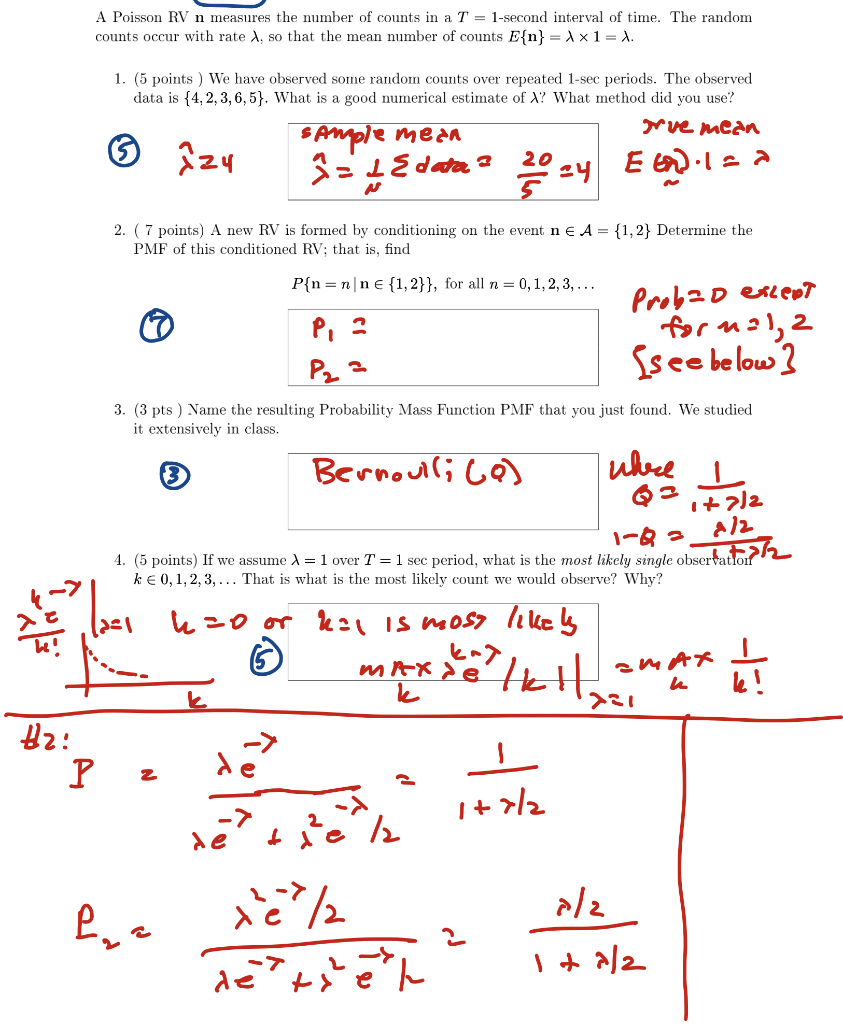 A Poisson RV n measures the number of counts in a T = 1-second interval of time. The random
counts occur with rate λ, so that the mean number of counts E{n} = λ × 1 = λ.
1. (5 points ) We have observed some random counts over repeated 1-sec periods. The observed
data is {4, 2, 3, 6, 5}. What is a good numerical estimate of λ? What method did you use?
5
λ̂ = 4
sample mean
λ̂ = 1/N Σ data = 20/5 = 4
true mean
E(n)·1 = λ
2. ( 7 points) A new RV is formed by conditioning on the event n ∈ A = {1, 2} Determine the
PMF of this conditioned RV; that is, find
P{n = n | n ∈ {1, 2}}, for all n = 0, 1, 2, 3, . . .
7
P₁ =
P₂ =
Prob = 0 except
for n = 1, 2
[see below]
3. (3 pts ) Name the resulting Probability Mass Function PMF that you just found. We studied
it extensively in class.
3
Bernoulli (Q)
where
Q = 1/(1 + λ/2)
1-Q = (λ/2)/(1 + λ/2)
4. (5 points) If we assume λ = 1 over T = 1 sec period, what is the most likely single observation
k ∈ 0, 1, 2, 3, . . . That is what is the most likely count we would observe? Why?
λᵏ e^-λ / k! |λ=1
k = 0 or k = 1 is most likely
5
max k λᵏ e^-λ / k! |λ=1 = max k 1/k!
k
#2:
P = λe^-λ / (λe^-λ + λ² e^-λ /2) = 1/(1 + λ/2)
P₂ = (λ² e^-λ /2) / (λe^-λ + λ² e^-λ /2) = (λ/2)/(1 + λ/2)